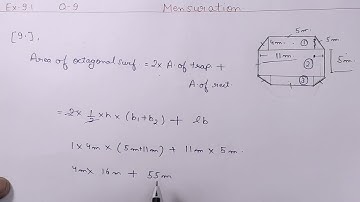 Ex-9.1 Q-9 Mensuration
[9.]
Area of octagonal surf = 2x A. of trap +
A. of rect
= 2x 1/2 x h x (b1+b2) + lb
1 x 4m x (5m+11m) + 11m x 5m
4m x 16m + 55m
5m
4m ① 5m
11m ② 5m
③